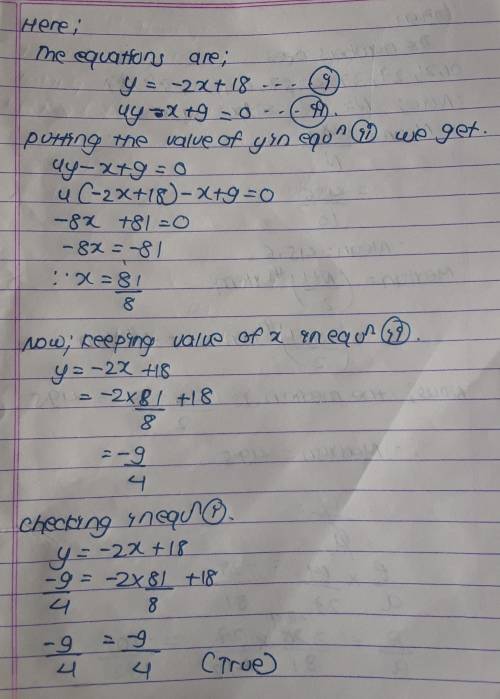 Here;
The equations are;
y = -2x+18 --- (i)
4y-x+9 = 0 -- (ii).
putting the value of y in equⁿ (ii) we get.
4y-x+9=0
4(-2x+18)-x+9=0
-8x +81=0
-8x = -81
∵x = 81/8
Now; keeping value of x in equⁿ (ii).
y = -2x +18
= -2×81/8 +18
= -9/4
checking in equⁿ (i).
y = -2x+18
-9/4 = -2×81/8 +18
-9/4 = -9/4 (True)